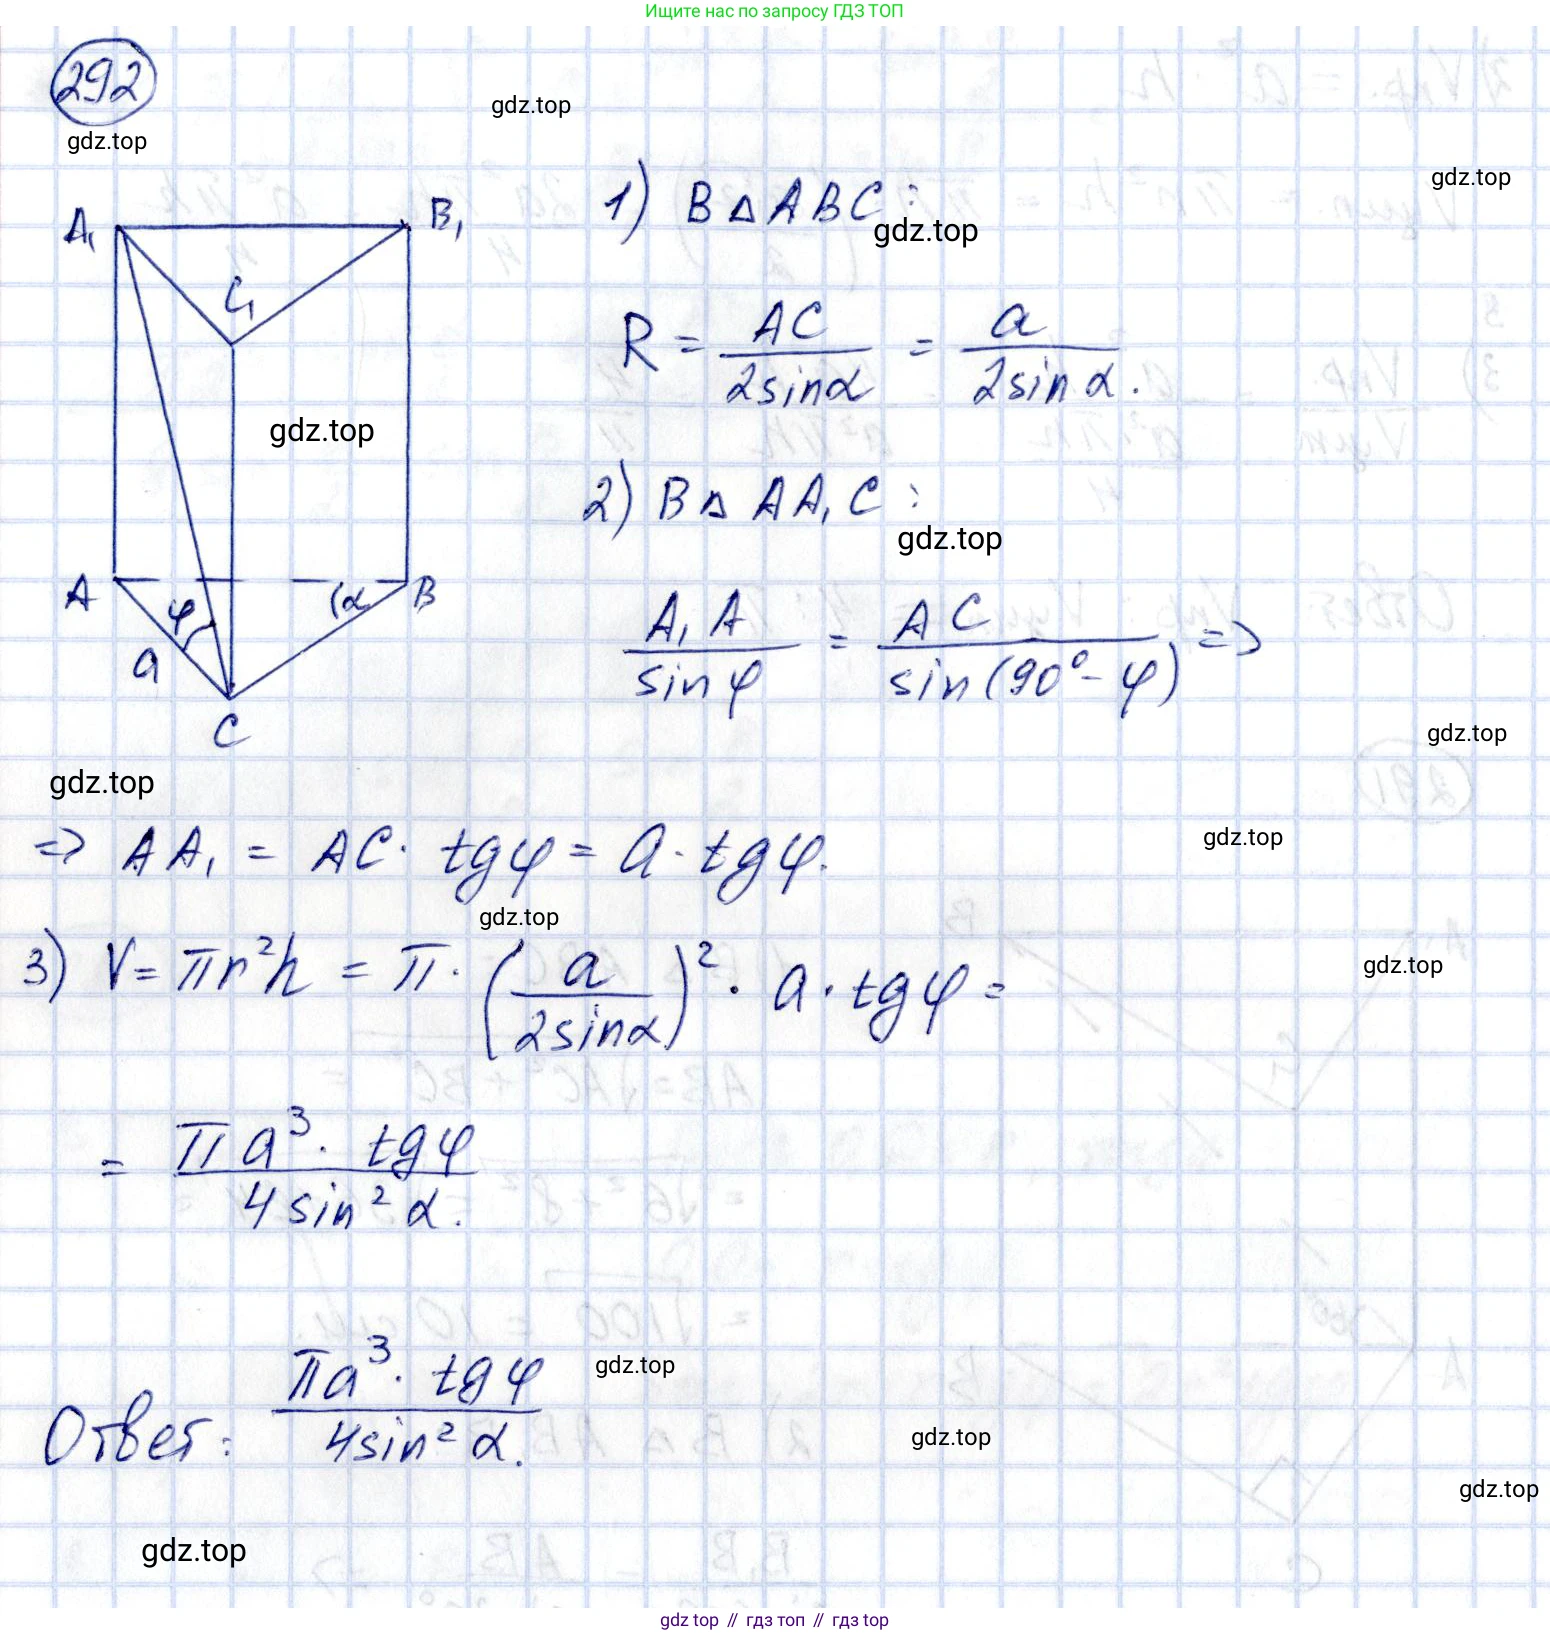 Ищите нас по запросу ГДЗ ТОП
292
gdz.top
gdz.top
gdz.top
A₁ B₁
C₁
gdz.top
A φ (α B
a
C
gdz.top
1) В △ ABC:
gdz.top
R = AC / 2sinα = a / 2sin α.
2) В △ AA₁C:
gdz.top
A₁A / sin φ = AC / sin(90° - φ) =>
gdz.top
=> AA₁ = AC · tgφ = a · tgφ.
gdz.top
gdz.top
3) V = πr²h = π · (a / 2sinα)² · a · tgφ =
gdz.top
= πa³ · tgφ / 4sin²α.
Ответ: πa³ · tgφ / 4sin²α.
gdz.top
gdz.top
gdz.top
gdz.top
gdz top // гдз топ // гдз top